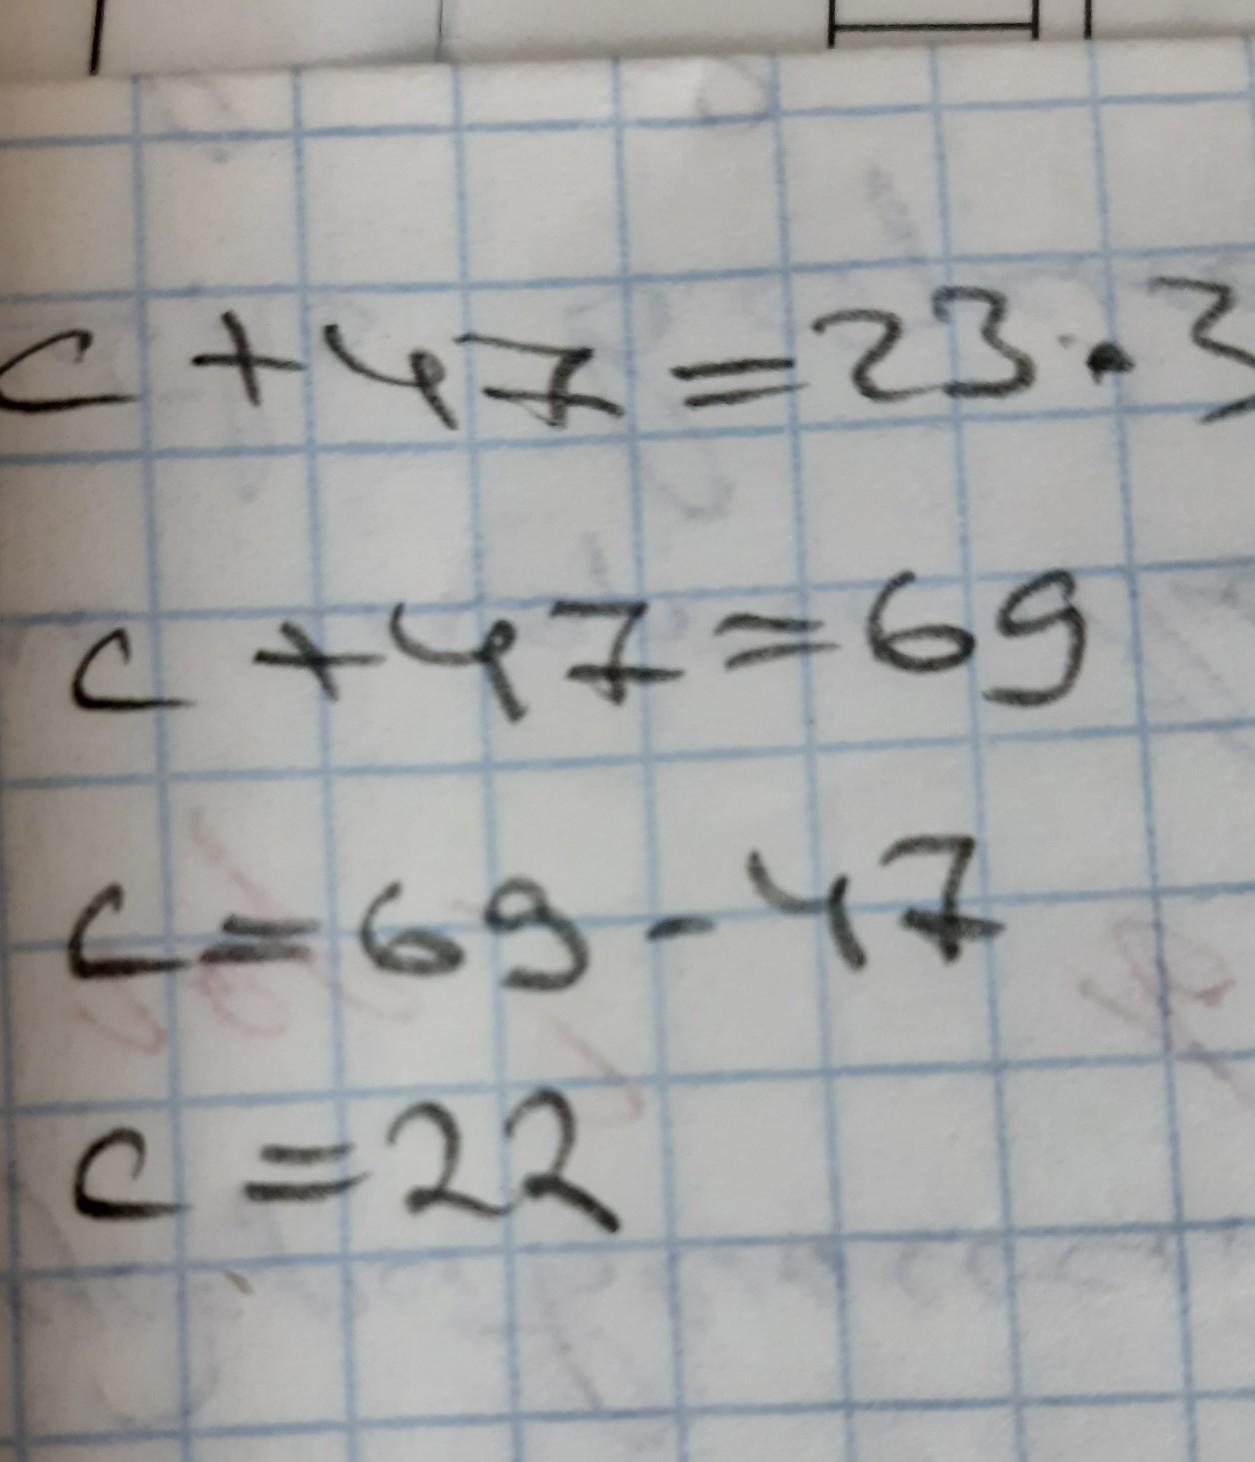 c + 47 = 23 · 3
c + 47 = 69
c = 69 - 47
c = 22